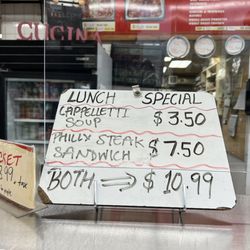 CUCINA
LUNCH SPECIAL
CAPPELLETTI
SOUP $3.50
PHILLY STEAK
SANDWICH $7.50
BOTH ⇒ $10.99